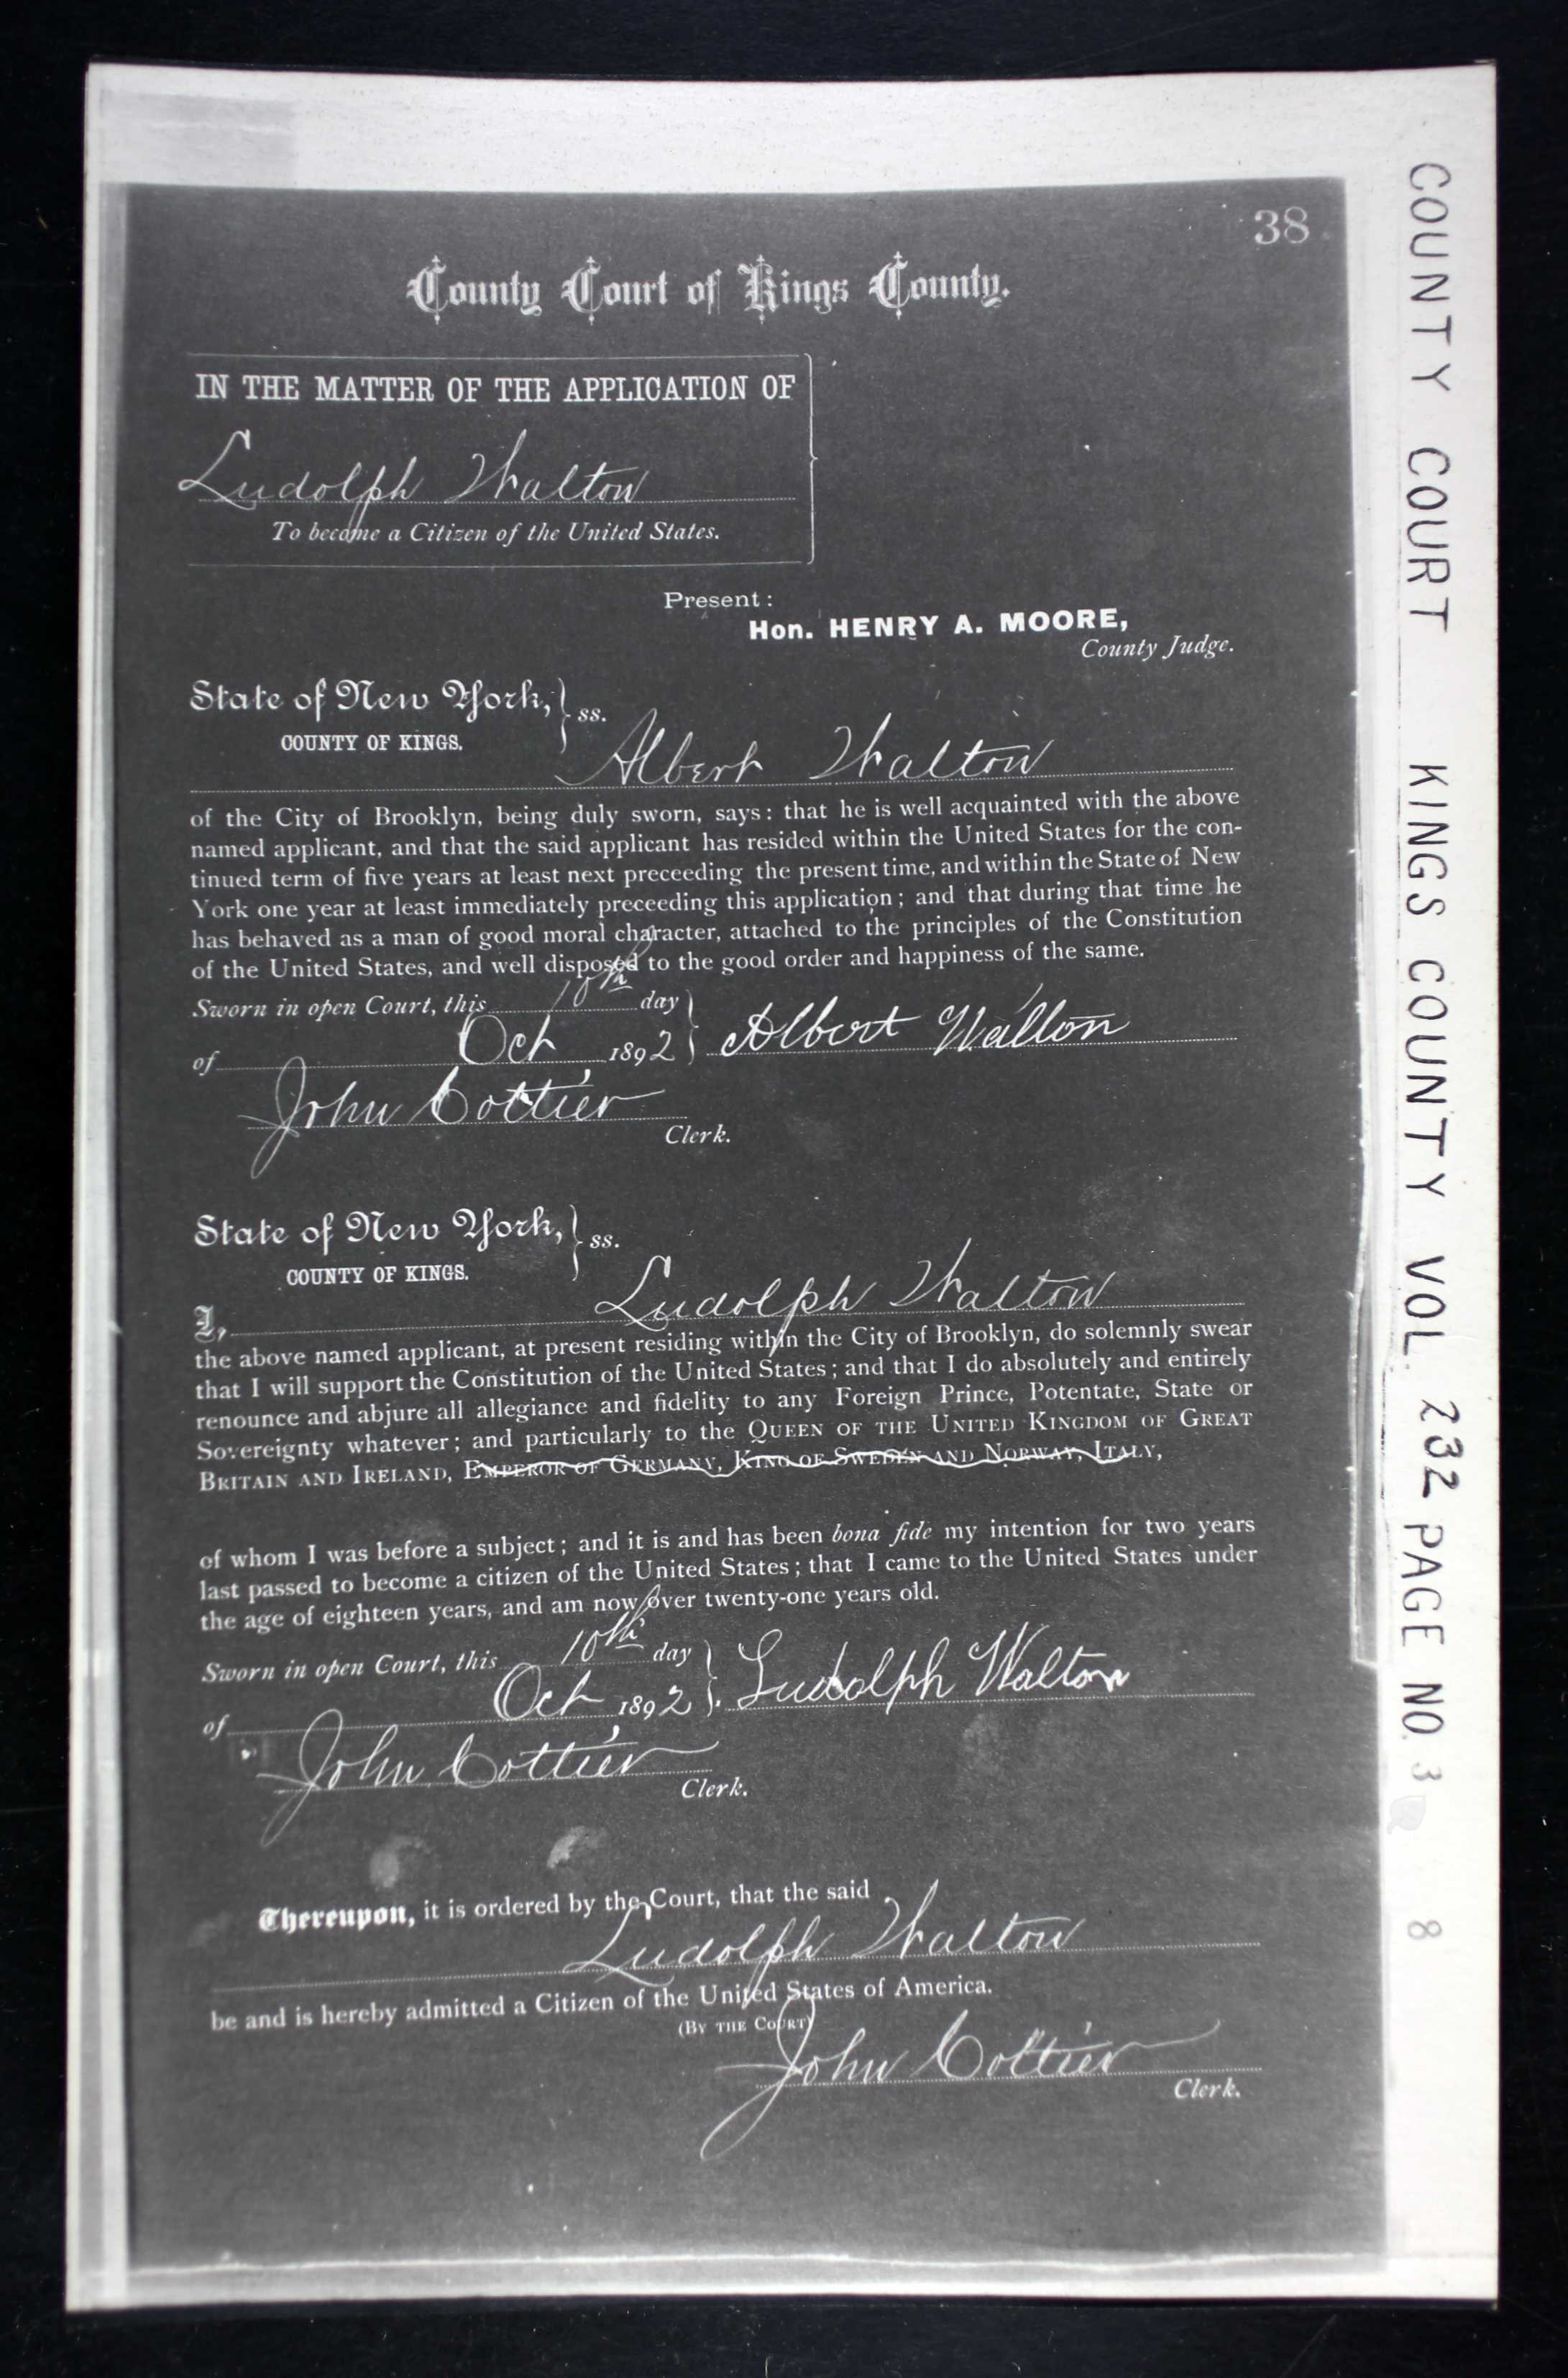 38
County Court of Kings County.
IN THE MATTER OF THE APPLICATION OF
Ludolph Walton
To become a Citizen of the United States.
Present :
Hon. HENRY A. MOORE,
County Judge.
State of New York, } ss.
COUNTY OF KINGS.
Albert Walton
of the City of Brooklyn, being duly sworn, says : that he is well acquainted with the above
named applicant, and that the said applicant has resided within the United States for the con-
tinued term of five years at least next preceeding the present time, and within the State of New
York one year at least immediately preceeding this application ; and that during that time he
has behaved as a man of good moral character, attached to the principles of the Constitution
of the United States, and well disposed to the good order and happiness of the same.
Sworn in open Court, this 10th day
of Oct 1892 } Albert Walton
John Cottier
Clerk.
State of New York, } ss.
COUNTY OF KINGS.
I, Ludolph Walton
the above named applicant, at present residing within the City of Brooklyn, do solemnly swear
that I will support the Constitution of the United States ; and that I do absolutely and entirely
renounce and abjure all allegiance and fidelity to any Foreign Prince, Potentate, State or
Sovereignty whatever ; and particularly to the QUEEN OF THE UNITED KINGDOM OF GREAT
BRITAIN AND IRELAND, EMPEROR OF GERMANY, KING OF SWEDEN AND NORWAY, ITALY,
of whom I was before a subject ; and it is and has been bona fide my intention for two years
last passed to become a citizen of the United States ; that I came to the United States under
the age of eighteen years, and am now over twenty-one years old.
Sworn in open Court, this 10th day
of Oct 1892 } Ludolph Walton
John Cottier
Clerk.
Thereupon, it is ordered by the Court, that the said
Ludolph Walton
be and is hereby admitted a Citizen of the United States of America.
(BY THE COURT)
John Cottier
Clerk.
COUNTY COURT KINGS COUNTY VOL. 232 PAGE NO. 38